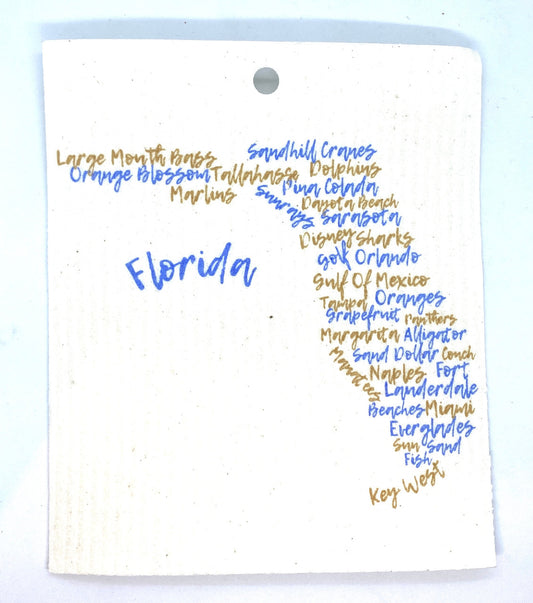 Sandhill Cranes
Large Mouth Bass
Orange Blossom Tallahasse Dolphins
Marlins Sunrays Pina Colada
Dayota Beach
Sarasota
Disney Sharks
Florida
Golf Orlando
Gulf Of Mexico
Tampa Oranges
Grapefruit Panthers
Margarita Alligator
Sand Dollar Conch
Manatees Naples Fort
Lauderdale
Beaches Miami
Everglades
Sun Sand
Fish
Key West